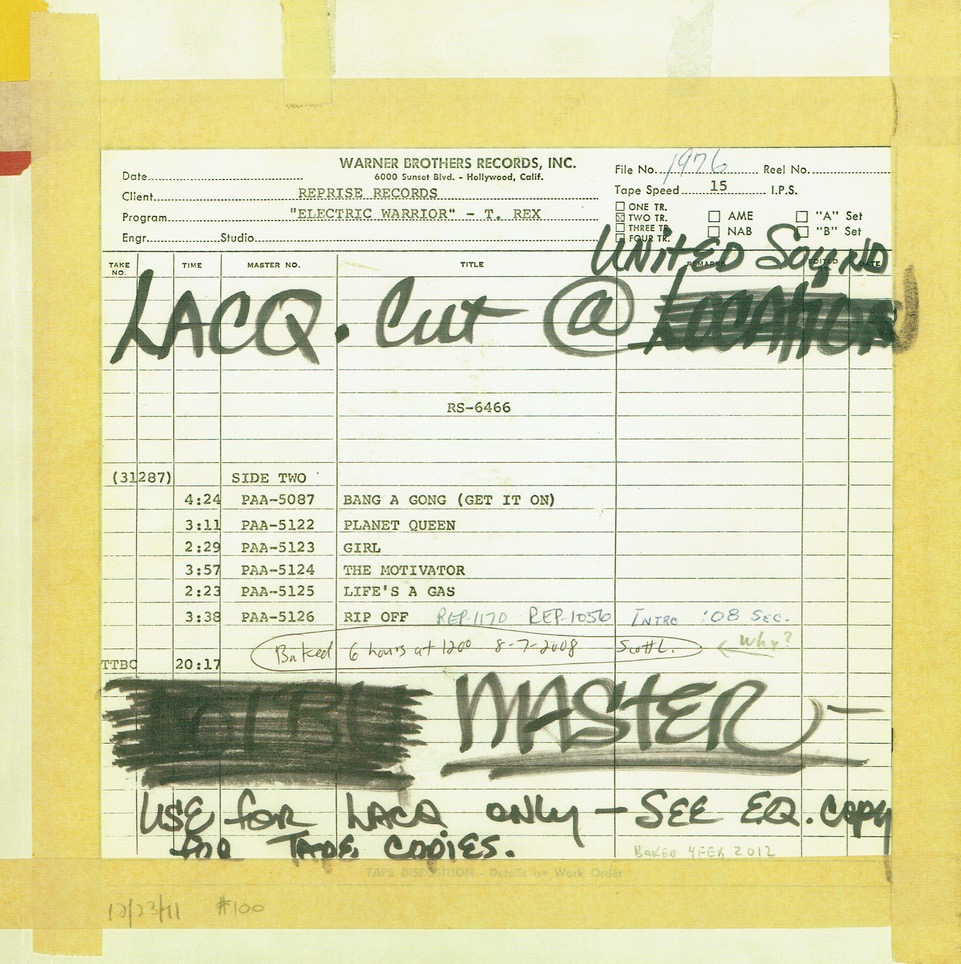 WARNER BROTHERS RECORDS, INC.
6000 Sunset Blvd. - Hollywood, Calif.
Date
File No. 1976 Reel No.
Client REPRISE RECORDS
Tape Speed 15 I.P.S.
Program "ELECTRIC WARRIOR" - T. REX
ONE TR.
TWO TR. AME "A" Set
THREE TR. NAB "B" Set
FOUR TR.
Engr. Studio
UNITED SOUND
TAKE NO. TIME MASTER NO. TITLE REMARKS EDITED
LACQ. Cut @ LOCATION
RS-6466
(31287) SIDE TWO
4:24 PAA-5087 BANG A GONG (GET IT ON)
3:11 PAA-5122 PLANET QUEEN
2:29 PAA-5123 GIRL
3:57 PAA-5124 THE MOTIVATOR
2:23 PAA-5125 LIFE'S A GAS
3:38 PAA-5126 RIP OFF REP-1170 REP-1056 INTRO :08 SEC.
Baked 6 hours at 120° 8-7-2008 Scott L. ← Why?
TTBC 20:17
MASTER
USE for LACQ ONLY - SEE EQ. COPY
FOR TAPE COPIES.
BAKED 4FEB 2012
TAPE DISPOSITION - Details on Work Order
12/23/71 #100